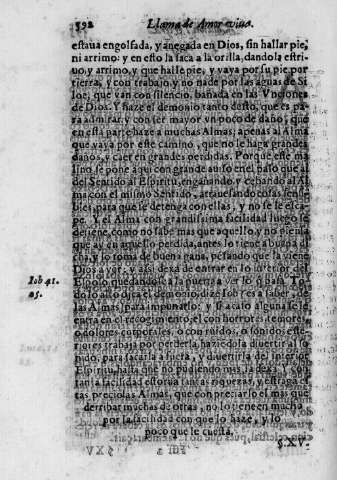 592 Llama de Amor viua.
estaua engolfada, y anegada en Dios, sin hallar pie,
ni arrimo: y en esto la saca a la orilla, dandola estri-
uo, y arrimo, y que halle pie, y vaya por su pie por
tierra, y con trabajo y no nade por las aguas de Si
loe, que van con silencio, bañada en las Vnciones
de Dios. Y haze el demonio tanto desto, que es pa-
ra admirar, y con ser mayor vn poco de daño, que
en esta parte haze a muchas Almas; apenas ai Alma
que vaya por este camino, que no le haga grandes
daños, y caer en grandes perdidas. Porque este ma
lino se pone aqui con grande auiso en el paso que ai
del Sentido al Espiritu, engañando, y cebando al
ma con el mismo Sentido, atrauesando cosas sensi-
bles, para que se detenga con ellas, y no se le esca-
pe. Y el Alma con grandissima facilidad luego se
detiene, como no sabe mas que aquello, y no piensa
que ay en aquello perdida, antes lo tiene a buena di
cha, y lo toma de buena gana, pesando que la viene
Dios a ver, y assi dexa de entrar en lo interior del
Esposo, quedandose a la puerta a ver lo que
Iob 41.
25.
las Almas, para impunarlo: y si acaso alguna se le
entra en el recogimiento, el con horrores, temores,
o dolores corporales, o con ruidos, o sonidos este-
riores trabaja por perderla, haziedola diuertir al se
tido, para sacarla a fuera, y diuertirla del interior
Espiritu, hasta que no pudiendo mas, la dexa. Y con
tanta facilidad estorua tantas riquezas, y estraga es
tas preciosas Almas, que con preciarlo el mas que
derribar muchas de otras, no lo tiene en mucho,
por la facilidad con que lo haze, y lo
poco que le cuesta.
§.XV.